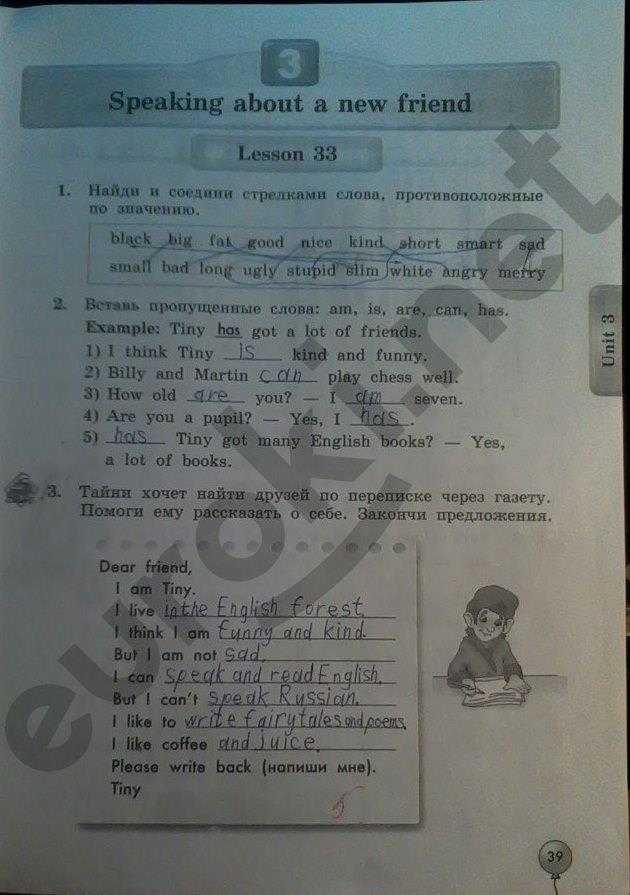 3
Speaking about a new friend
Lesson 33
1. Найди и соедини стрелками слова, противоположные
по значению.
black big fat good nice kind short smart sad
small bad long ugly stupid slim white angry merry
2. Вставь пропущенные слова: am, is, are, can, has.
Example: Tiny has got a lot of friends.
1) I think Tiny is kind and funny.
2) Billy and Martin can play chess well.
3) How old are you? — I am seven.
4) Are you a pupil? — Yes, I has.
5) has Tiny got many English books? — Yes,
a lot of books.
Unit 3
3. Тайни хочет найти друзей по переписке через газету.
Помоги ему рассказать о себе. Закончи предложения.
Dear friend,
I am Tiny.
I live in the English forest.
I think I am funny and kind.
But I am not sad.
I can speak and read English.
But I can't speak Russian.
I like to write fairytales and poems.
I like coffee and juice.
Please write back (напиши мне).
Tiny
5
39
euroki.net